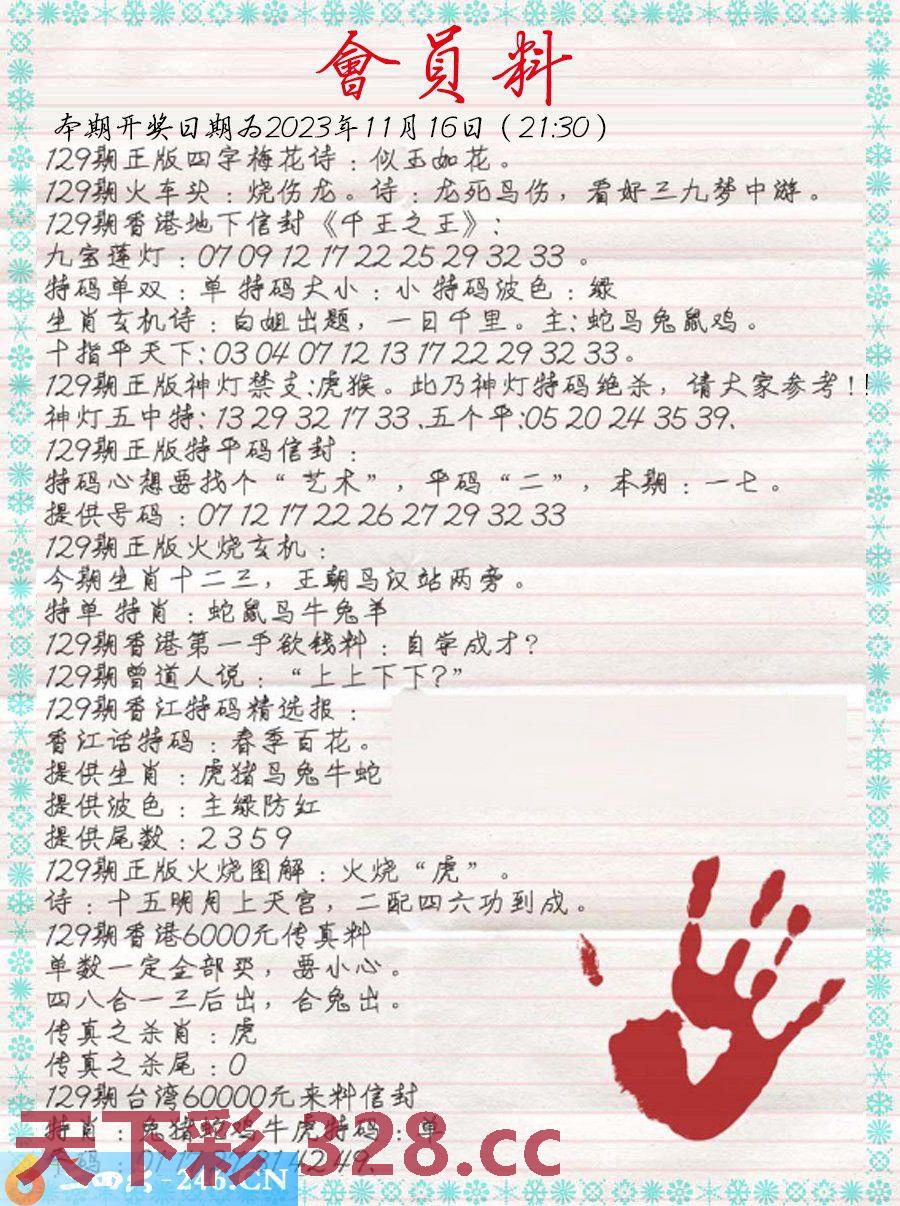 會員料
本期开奖日期为2023年11月16日（21:30）
129期正版四字梅花诗：似玉如花。
129期火车头：烧伤龙。诗：龙死马伤，看好三九梦中游。
129期香港地下信封《千王之王》：
九宝莲灯：07 09 12 17 22 25 29 32 33 。
特码单双：单 特码大小：小 特码波色：绿
生肖玄机诗：白姐出题，一日千里。主：蛇马兔鼠鸡。
十指平天下:03 04 07 12 13 17 22 29 32 33。
129期正版神灯禁支:虎猴。此乃神灯特码绝杀，请大家参考!!
神灯五中特: 13 29 32 17 33 、五个平:05 20 24 35 39、
129期正版特平码信封：
特码心想要找个“艺术”，平码“二”，本期：一七。
提供号码：07 12 17 22 26 27 29 32 33
129期正版火烧玄机：
今期生肖十二三，王朝马汉站两旁。
特单 特肖：蛇鼠马牛兔羊
129期香港第一手欲钱料：自学成才?
129期曾道人说：“上上下下?”
129期香江特码精选报：
香江话特码：春季百花。
提供生肖：虎猪马兔牛蛇
提供波色：主绿防红
提供尾数：2 3 5 9
129期正版火烧图解：火烧“虎”。
诗：十五明月上天宫，二配四六功到成。
129期香港6000元传真料
单数一定全部买，要小心。
四八合一三后出，合兔出。
传真之杀肖：虎
传真之杀尾：0
129期台湾60000元来料信封
特肖：兔猪蛇鸡牛虎特码：单
天下彩 328.cc
42 49、
-246.CN